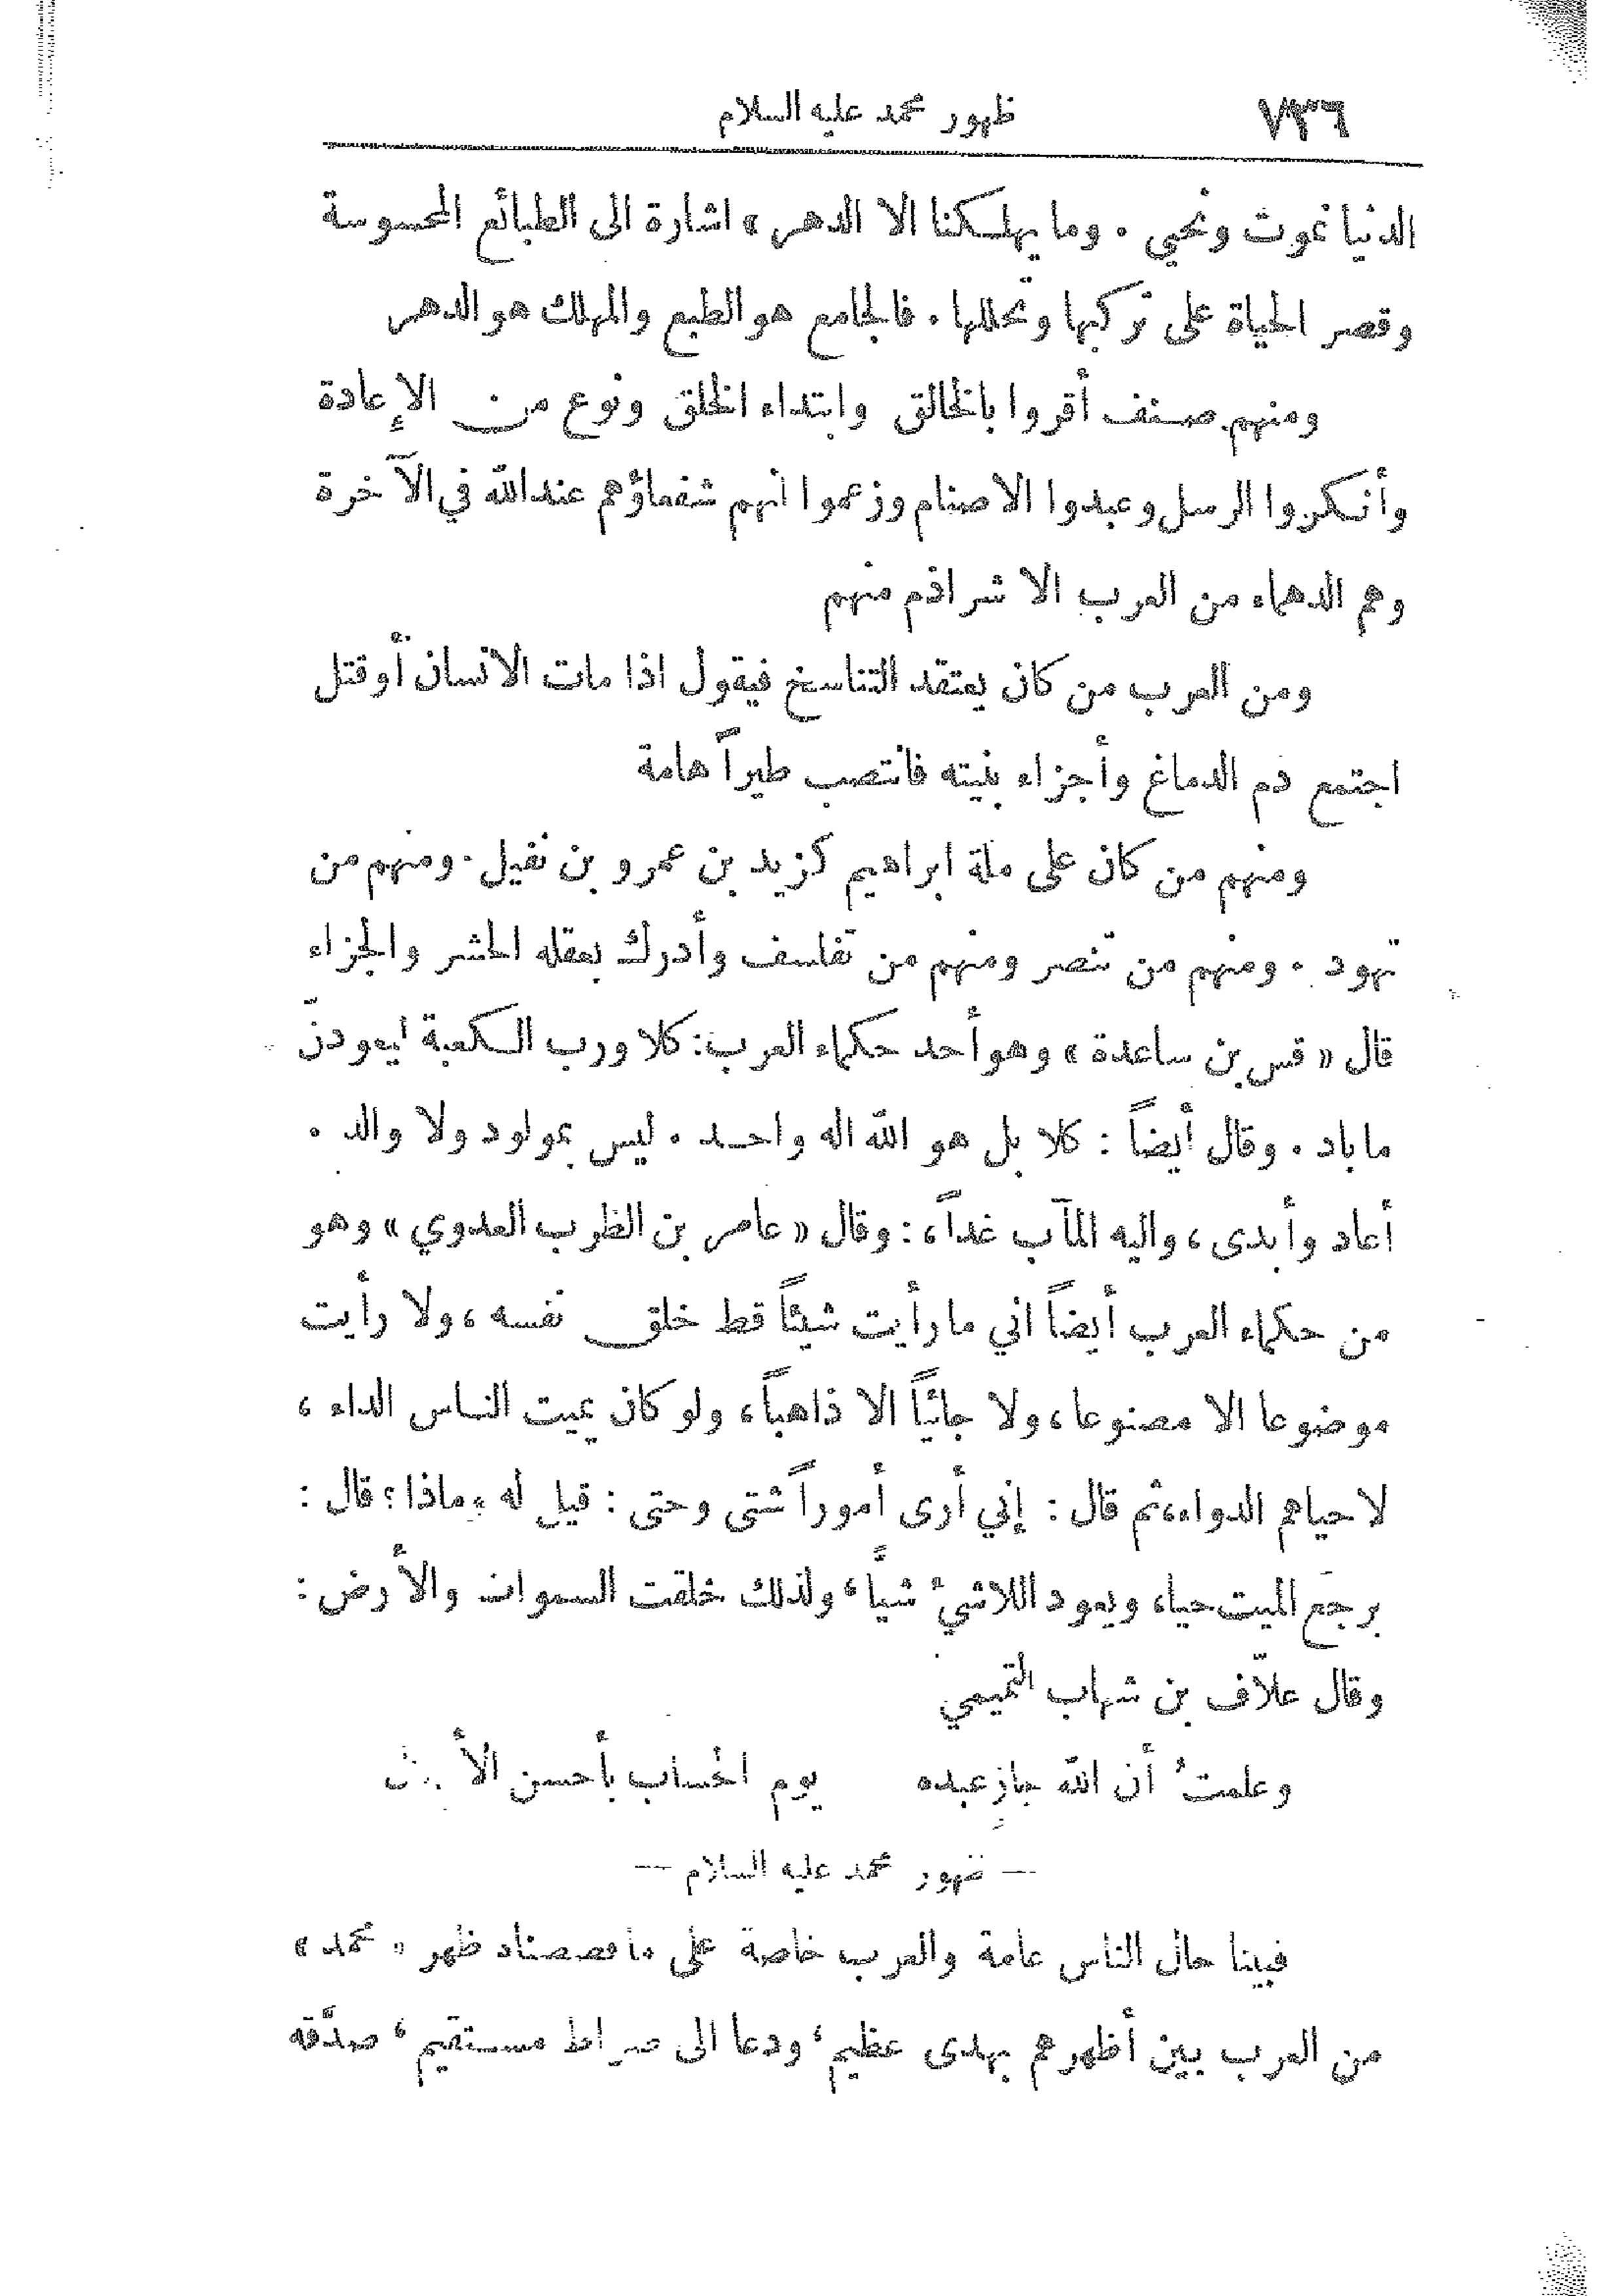 ٧٣٦ ظهور محمد عليه السلام
الدنيا نموت ونحيي . وما يهلكنا الا الدهر » اشارة الى الطبائع المحسوسة
وقصر الحياة على تركبها وتحللها . فالجامع هو الطبع والمهلك هو الدهر
ومنهم صنف أقروا بالخالق وابتداء الخلق ونوع من الإعادة
وأنكروا الرسل وعبدوا الاصنام وزعموا انهم شفعاؤهم عند الله في الآخرة
وهم الدهماء من العرب الا شراذم منهم
ومن العرب من كان يعتقد التناسخ فيقول اذا مات الانسان أو قتل
اجتمع دم الدماغ وأجزاء بنيته فانتصب طيراً هامة
ومنهم من كان على ملة ابراهيم كزيد بن عمرو بن نفيل . ومنهم من
تهود . ومنهم من تنصر ومنهم من تفلسف وأدرك بعقله الحشر والجزاء
قال « قس بن ساعدة » وهو أحد حكماء العرب : كلا ورب الكعبة ليعودنّ
ما باد . وقال أيضاً : كلا بل هو الله اله واحد . ليس بمولود ولا والد .
أعاد وأبدى ، واليه المآب غداً ، : وقال « عامر بن الظرب العدوي » وهو
من حكماء العرب أيضاً اني ما رأيت شيئاً قط خلق نفسه ، ولا رأيت
موضوعا الا مصنوعا ، ولا جائياً الا ذاهباً ، ولو كان يميت الناس الداء ،
لاحياهم الدواء ، ثم قال : إني أرى أموراً شتى وحتى : قيل له ماذا ؟ قال :
يرجع الميت حيا ، ويعود اللاشيء شيأ ، ولذلك خلقت السموات والأرض :
وقال علاّف بن شهاب التميمي
وعلمتُ أن الله جازٍ عبده يوم الحساب بأحسن
— ظهور محمد عليه السلام —
فبينا حال الناس عامة والعرب خاصة على ما قصصناه ظهر « محمد »
من العرب بين أظهرهم بهدى عظيم ، ودعا الى صراط مستقيم ، صدَّقه